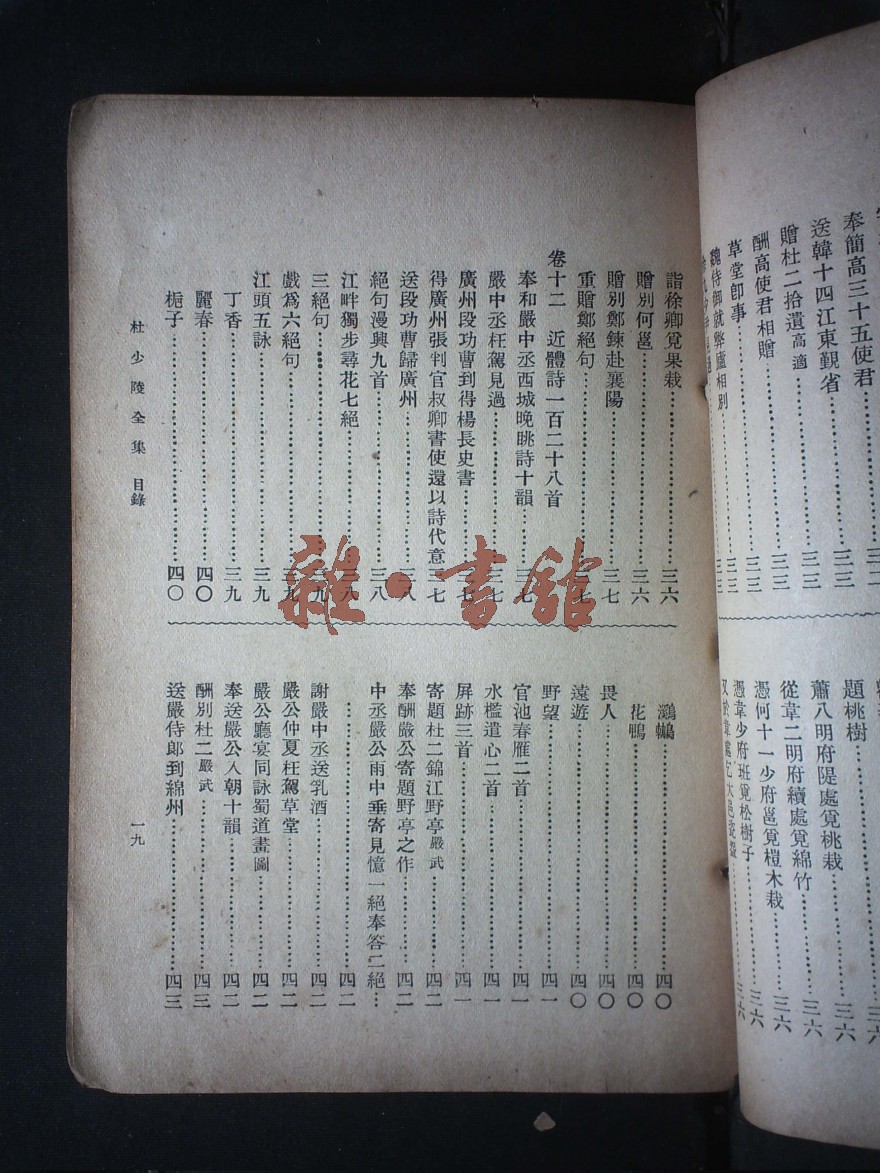 奉簡高三十五使君……三二
送韓十四江東覲省……三三
贈杜二拾遺高適……三三
酬高使君相贈……三三
草堂卽事……三三
題桃樹
蕭八明府隄處覓桃栽……三六
從韋二明府續處覓綿竹……三六
憑何十一少府邕覓榿木栽……三六
憑韋少府班覓松樹子……三六
詣徐卿覓果栽……三六
贈別何邕……三六
贈別鄭鍊赴襄陽……三七
重贈鄭絕句……三七
卷十二 近體詩一百二十八首
奉和嚴中丞西城晚眺詩十韻……三七
嚴中丞枉駕見過……三七
廣州段功曹到得楊長史書……三七
得廣州張判官叔卿書使還以詩代意 三七
送段功曹歸廣州……三八
絕句漫興九首……三八
江畔獨步尋花七絕……三八
三絕句……三九
戲爲六絕句……三九
江頭五詠……三九
丁香……三九
麗春……四〇
梔子……四〇
鸂鶒……四〇
花鴨……四〇
畏人……四〇
遠遊……四〇
野望……四一
官池春雁二首……四一
水檻遣心二首……四一
屏跡三首……四一
寄題杜二錦江野亭嚴武……四二
奉酬嚴公寄題野亭之作……四二
中丞嚴公雨中垂寄見憶一絕奉答二絕…
……四二
謝嚴中丞送乳酒……四二
嚴公仲夏枉駕草堂……四二
嚴公廳宴同詠蜀道畫圖……四二
奉送嚴公入朝十韻……四二
酬別杜二嚴武……四三
送嚴侍郎到綿州……四三
杜少陵全集 目錄
一九
雜·書館